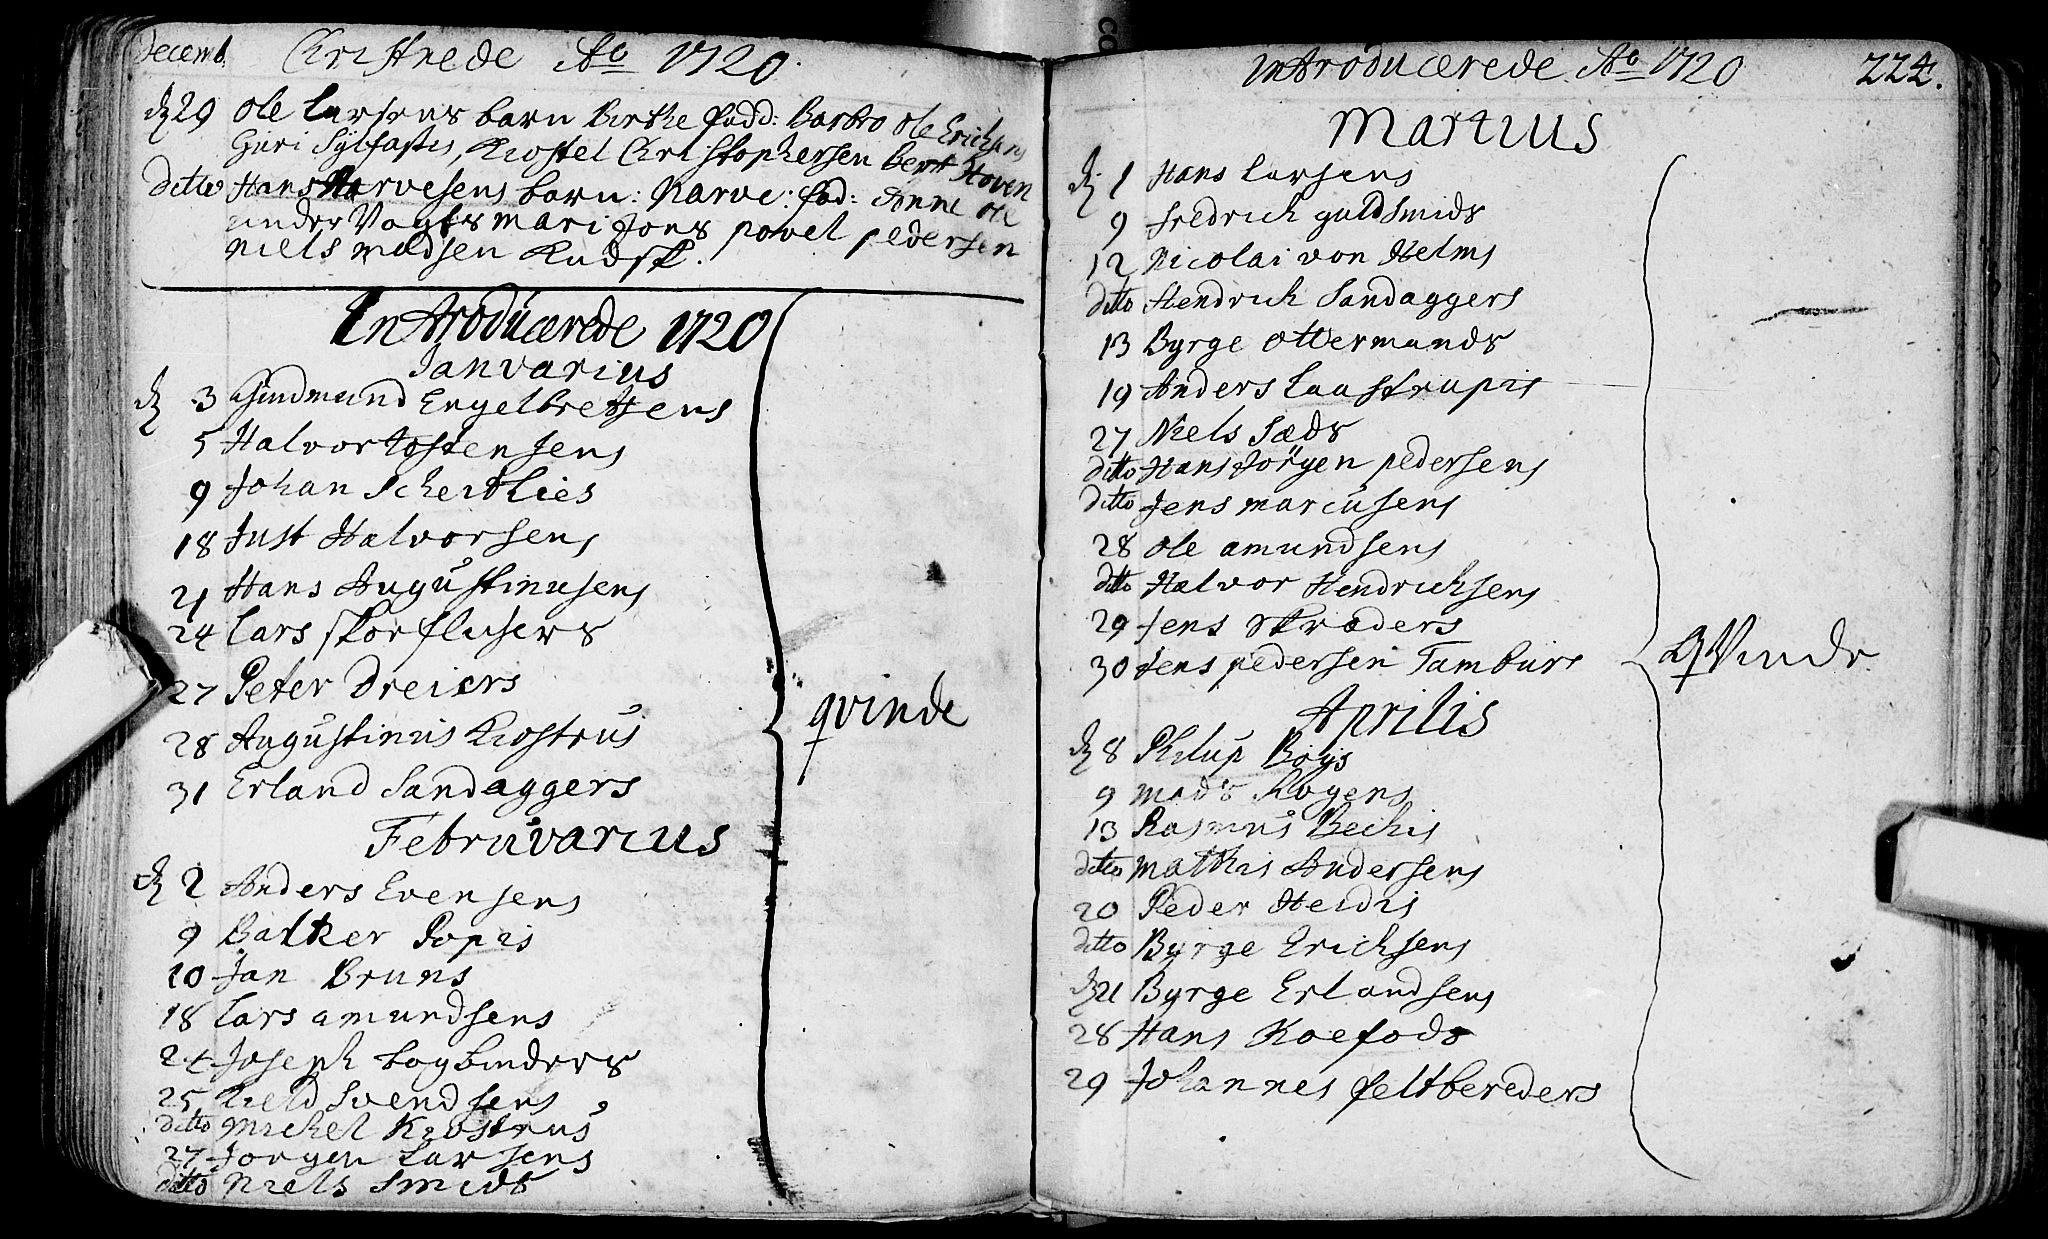 Decemb. Christnede Ao 1720.
dn 29 Ole Larsens barn Birthe fadd: Barbro Ole Erichsens
Guri Sylfastis, Kiostel Christophersen bert Hoven
ditto Hans Narvesens barn: Narve: fad: Anne Ole
under Vogts Mari Jons povel pedersen
niels madsen Kudsk.
Introducerede 1720
Januarius
dn 3 Gudmund Engelbretsens
5 Halvor tostensens
9 Johan Schertlies
18 Just Halvorsens
21 Hans Augustinusens
24 Lars skorflusers
27 Peter Dreiers
28 Augustinus Kiostrus
31 Erland Sandaggers
qvinde
Februvarius
dn 2 Anders Evensens
9 Baltzer Popis
10 Jan Bruns
18 Lars amundsens
24 Joseph bogbinders
25 Kield Svendsens
ditto Michel Kiostrus
27 Jorgen Larsens
ditto Niels Smids
Introducerede Ao 1720 224.
Martius
dn 1 Hans Larsens
9 fredrich guldsmids
12 Nicolai von Helms
ditto Hendrich Sandaggers
13 Byrge Ottermands
19 Anders Laastrupis
27 Niels Sæds
ditto Hans Jörgen pedersens
ditto Jens marcusens
28 Ole amundsens
ditto Halvor Hendrichsens
29 Jens Skræders
30 Jens pedersen Tamburs
qvinde
Aprilis
dn 8 Philip Boÿs
9 mads Kogens
13 Rasmus Bechis
ditto Mathis Andersens
20 Peder Heidis
ditto Byrge Erichsens
dn 21 Byrge Erlandsens
28 Hans Koefods
29 Johannes feltbereders